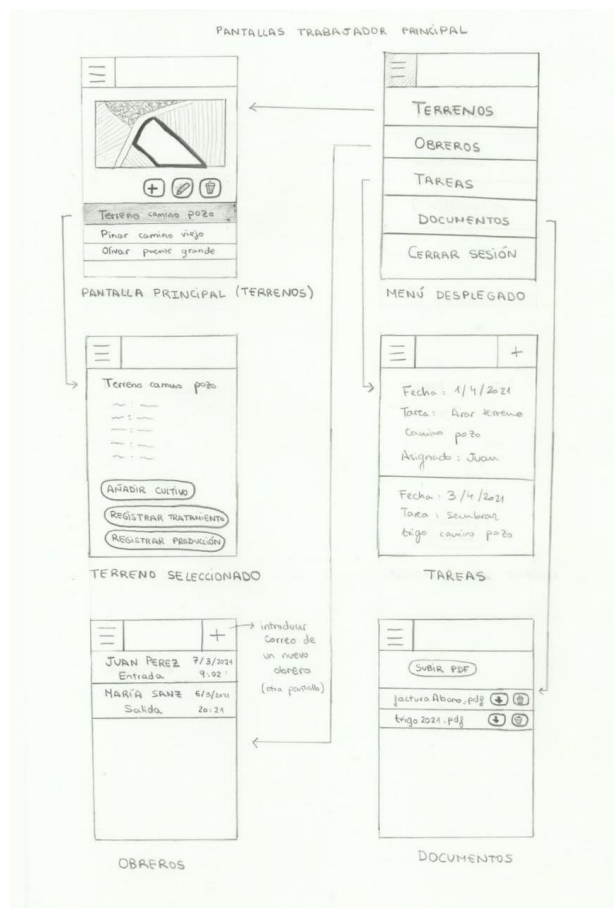 PANTALLAS TRABAJADOR PRINCIPAL
Terreno camino pozo
Pinar camino viejo
Olivar puente grande
PANTALLA PRINCIPAL (TERRENOS)
TERRENOS
OBREROS
TAREAS
DOCUMENTOS
CERRAR SESIÓN
MENÚ DESPLEGADO
Terreno camino pozo
AÑADIR CULTIVO
REGISTRAR TRATAMIENTO
REGISTRAR PRODUCCIÓN
TERRENO SELECCIONADO
Fecha : 1/4/2021
Tarea : Arar terreno
Camino pozo
Asignado : Juan
Fecha : 3/4/2021
Tarea : Sembrar
trigo camino pozo
TAREAS
JUAN PEREZ 7/3/2021
Entrada 9:02
MARÍA SANZ 6/3/2021
Salida 20:21
introducir
correo de
un nuevo
obrero
(otra pantalla)
OBREROS
SUBIR PDF
factura Abono.pdf
trigo 2021.pdf
DOCUMENTOS